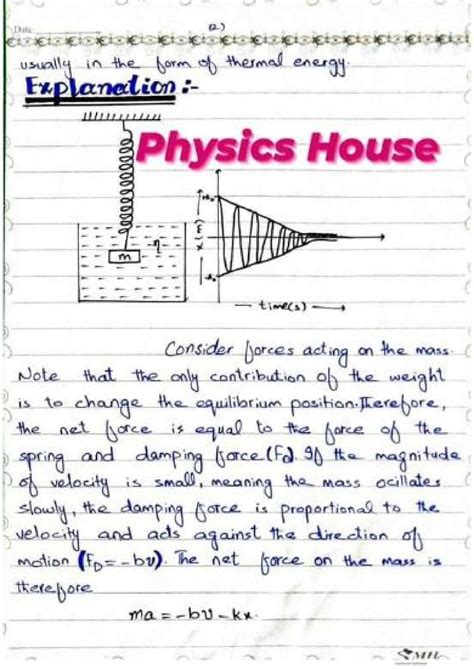 Date
12)
usually in the form of thermal energy.
Explanation :-
Physics House
+x₀
x (t)
-x₀
η
m
time(s)
Consider forces acting on the mass.
Note that the only contribution of the weight
is to change the equilibrium position. Therefore,
the net force is equal to the force of the
spring and damping force (F_D). If the magnitude
of velocity is small, meaning the mass ocillates
slowly, the damping force is proportional to the
velocity and acts against the direction of
motion (F_D = -bv). The net force on the mass is
therefore
ma = -bv - kx.